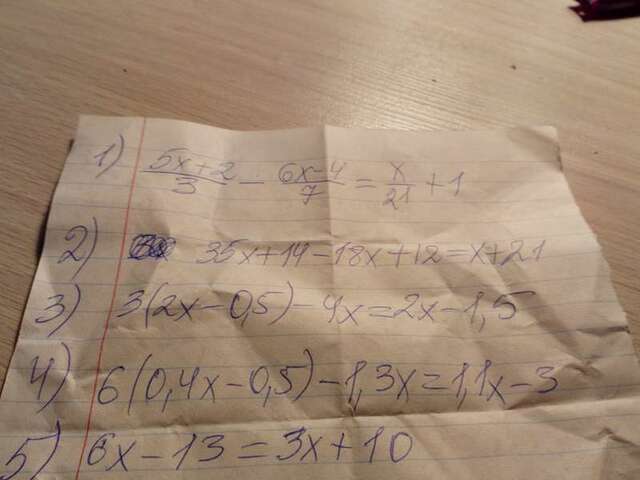 1) (5x+2)/3 - (6x-4)/7 = x/21 + 1
2) 35x+14-18x+12=x+21
3) 3(2x-0,5)-4x=2x-1,5
4) 6(0,4x-0,5)-1,3x=1,1x-3
5) 6x-13=3x+10